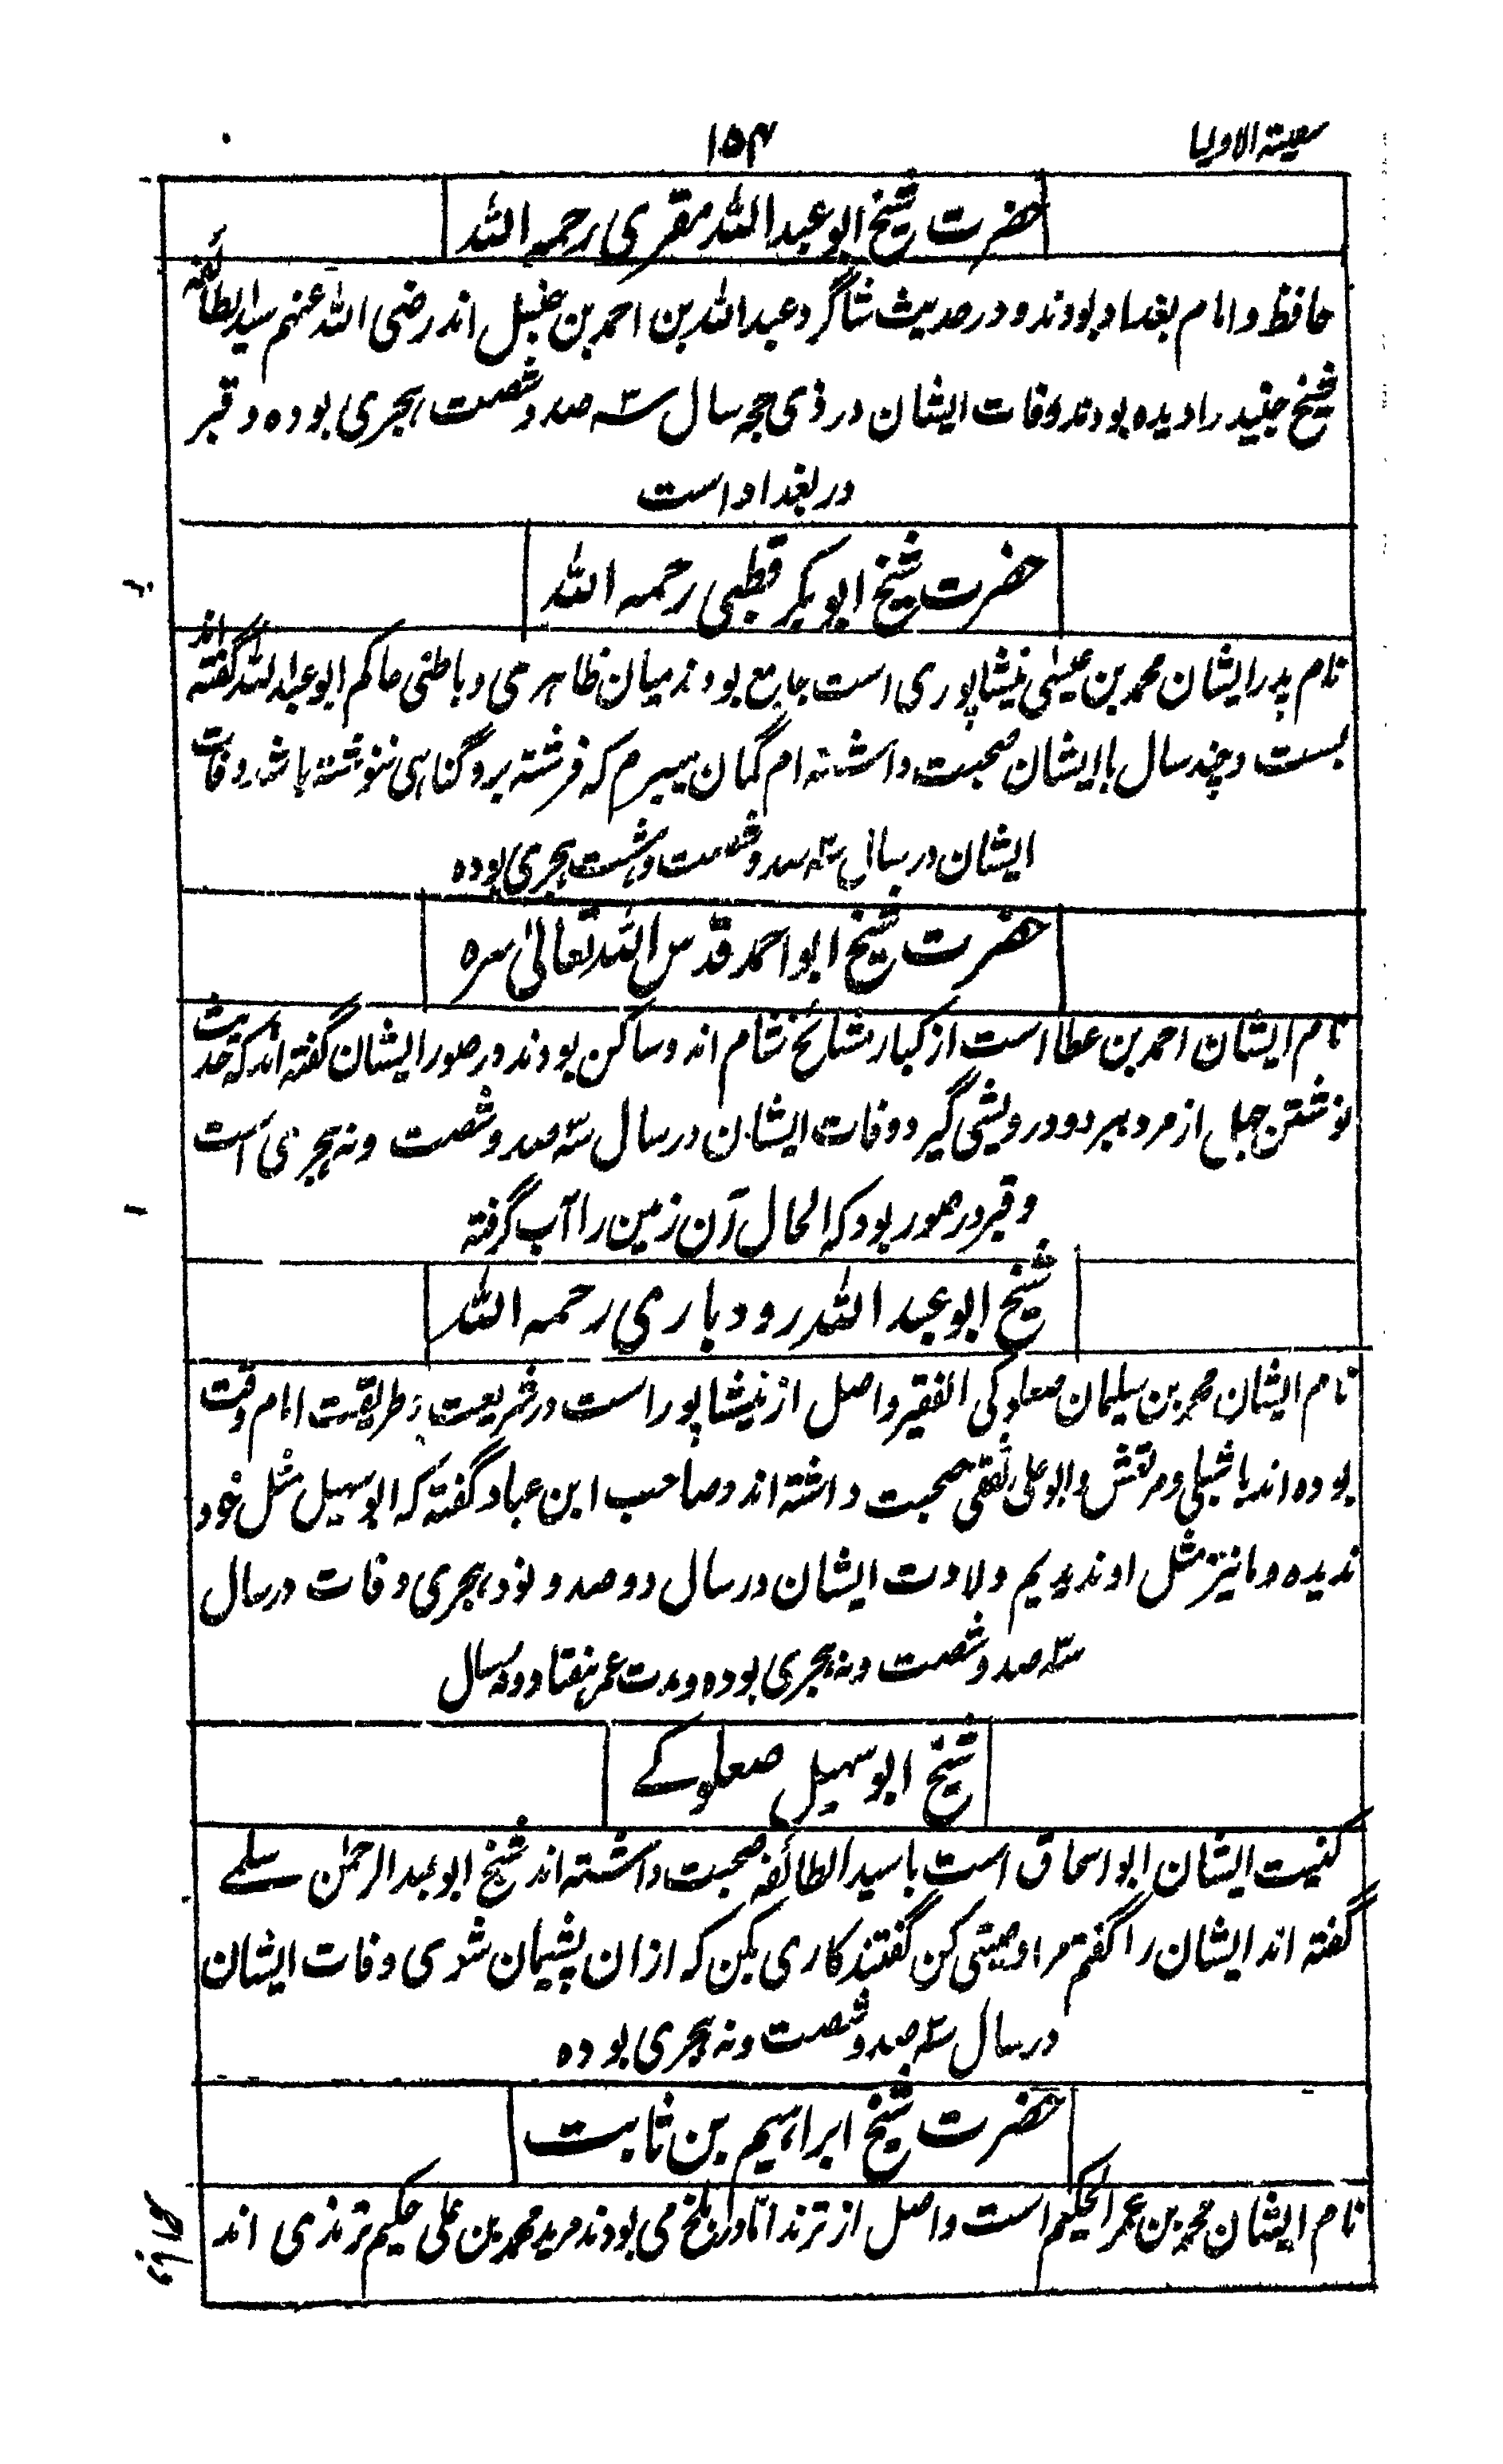 سفینة الاولیا
۱۵۴
حضرت شیخ ابو عبد الله مقری رحمه الله
حافظ و امام بغداد بودند و در حدیث شاگرد عبدالله بن احمد بن حنبل اند رضی الله عنهم سید الطائفه
شیخ جنید را دیده بودند وفات ایشان در ذی حجه سال سه صد و شصت هجری بوده و قبر
در بغداد است
حضرت شیخ ابو بکر قطبی رحمه الله
نام پدر ایشان محمد بن عیسی نیشاپوری است جامع بودند میان ظاهری و باطنی حاکم ابو عبد الله گفته اند
بست و چند سال با ایشان صحبت داشته ام گمان میبرم که فرشته برو گناهی ننوشته باشد وفات
ایشان در سال سه صد و شصت و هشت هجری بوده
حضرت شیخ ابو احمد قدس الله تعالی سره
نام ایشان احمد بن عطا است از کبار مشائخ شام اند و ساکن بودند در صور ایشان گفته اند که حدیث
نوشتن جهل از مرد ببرد و درویشی گیرد و وفات ایشان در سال سه صد و شصت و نه هجری است
و قبر در صور بود که الحال آن زمین را آب گرفته
شیخ ابو عبد الله رودباری رحمه الله
نام ایشان محمد بن سلیمان صعلوکی الفقیر و اصل از نیشاپور است در شریعت و طریقت امام وقت
بوده اند با شبلی و مرتعش و ابو علی ثقفی صحبت داشته اند و صاحب ابن عباد گفته که ابو سهیل مثل خود
ندیده و ما نیز مثل او ندیدیم ولادت ایشان در سال دو صد و نود هجری وفات در سال
سه صد و شصت و نه هجری بوده و مدت عمر هفتاد و نه سال
شیخ ابو سهیل صعلوکے
کنیت ایشان ابو اسحاق است با سید الطائفه صحبت داشته اند شیخ ابو عبد الرحمن سلمے
گفته اند ایشان را گفتم مرا وصیتی کن گفتند کاری بکن که ازان پشیمان شوی وفات ایشان
در سال سه صد و شصت و نه هجری بوده
حضرت شیخ ابراهیم بن ثابت
نام ایشان محمد بن عمر الحکیم است و اصل از ترمذ اما در بلخ می بودند مرید محمد بن علی حکیم ترمذی اند